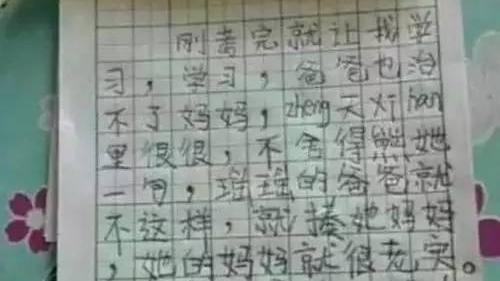 刚考完就让我学
习，学习，爸爸也治
不了妈妈，zheng天对han
里很很，不舍得熊她
一句，瑶瑶的爸爸就
不这样，就揍她妈妈
，她的妈妈就很老实。